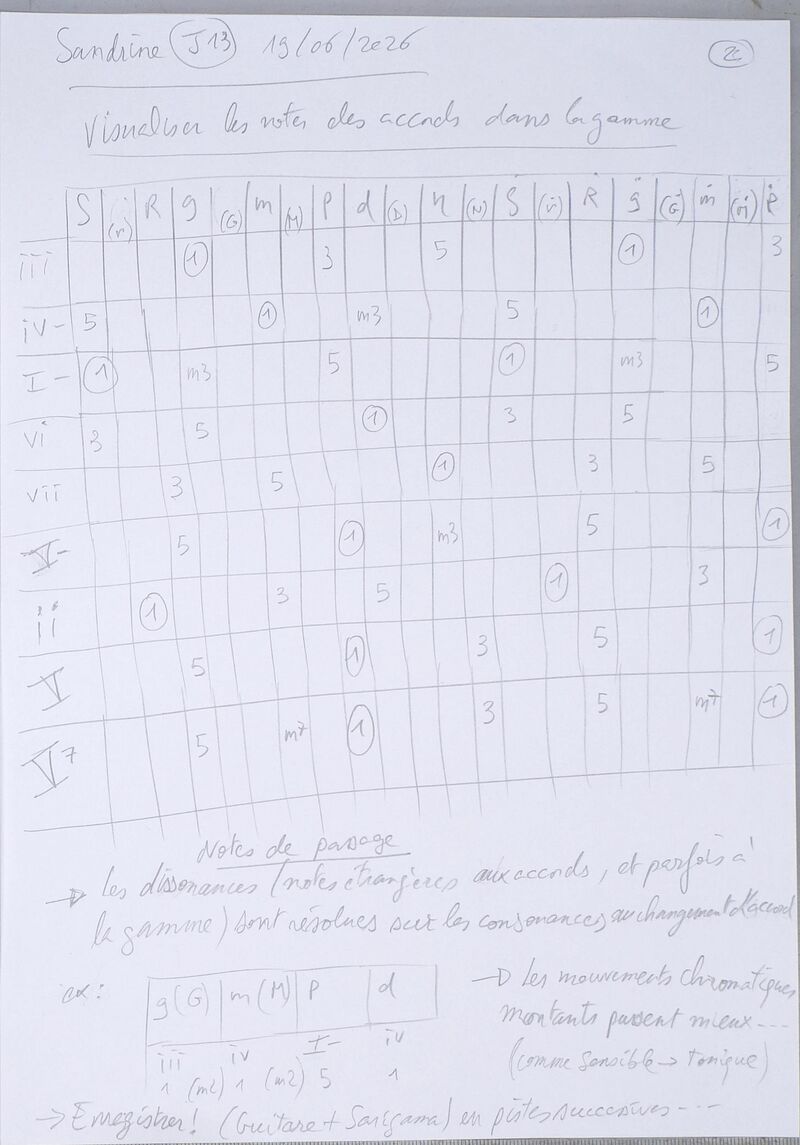 Sandrine J13 19/06/2026
Visualiser les notes des accords dans la gamme
S (r) R g (G) m (M) P d (D) n (N) Ṡ (ṙ) Ṙ ġ (Ġ) ṁ (Ṁ) Ṗ
iii 1 3 5 1 3
iv- 5 1 m3 5 1
I- 1 m3 5 1 m3 5
vi 3 5 1 3 5
vii 3 5 1 3 5
V- 5 1 m3 5 1
ii 1 3 5 1 3
V 5 1 3 5 1
V7 5 m7 1 3 5 m7 1
Notes de passage
→ Les dissonances (notes étrangères aux accords, et parfois à
la gamme) sont résolues sur les consonances au changement d'accord
ex: g(G) m(M) P d
iii iv I- iv
1 (m2) 1 (m2) 5 1
→ Les mouvements chromatiques
montants passent mieux ---
(comme sensible → tonique)
→ Enregistrer! (Guitare + Sarigama) en pistes successives ---